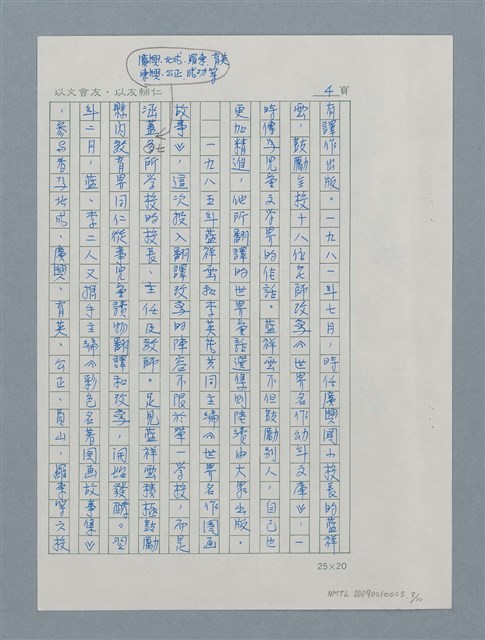 廣興、北成、羅東、育英
東興、公正、成功等
以文會友・以友輔仁
4頁
有譯作出版。一九八一年七月，時任廣興國小校長的藍祥
雲，鼓勵全校十八位老師改寫《世界名作幼年文庫》，一
時傳為兒童文學界的佳話。藍祥雲不但鼓勵別人，自己也
更加精進，他所翻譯的世界童話選集則陸續由大眾出版。
一九八五年藍祥雲和李英茂共同主編《世界名作圖画
故事》，這次投入翻譯改寫的陣容不限於單一學校，而是
涵蓋所學校的校長、主任及教師。足見藍祥雲積極鼓勵
縣內教育界同仁從事兒童讀物翻譯和改寫，開始發酵。翌
年二月，藍、李二人又攜手主編《彩色名著圖画故事集》
，參與者為北成、廣興、育英、公正、員山、羅東等六校
25×20
NMTL 20090010005.